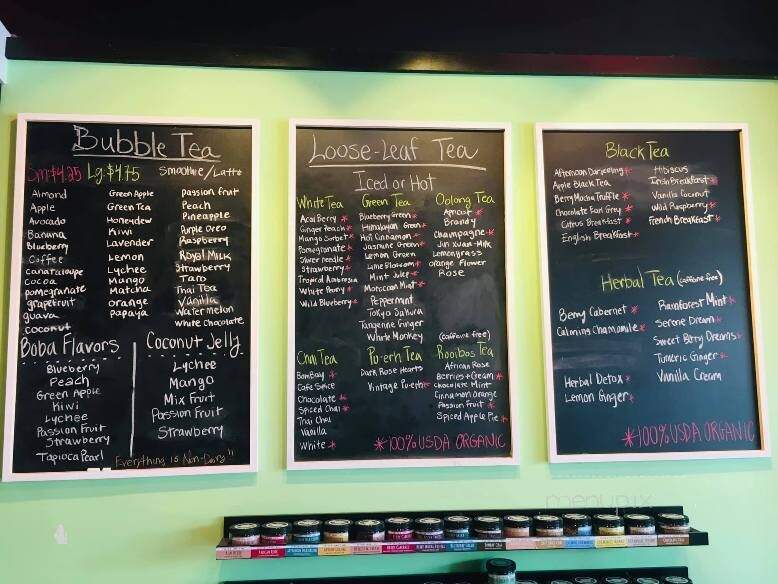 Bubble Tea
Sm:$4.25 Lg:$4.75 Smoothie/Latte
Almond
Apple
Avocado
Banana
Blueberry
Coffee
Canataloupe
Cocoa
pomegranate
grapefruit
guava
coconut
Green Apple
Green Tea
Honeydew
Kiwi
Lavender
Lemon
Lychee
Mango
Matcha
orange
papaya
passion fruit
Peach
Pineapple
Purple Oreo
Raspberry
Royal Milk
Strawberry
Taro
Thai Tea
Vanilla
Watermelon
White Chocolate
Boba Flavors
Blueberry
Peach
Green Apple
Kiwi
Lychee
Passion Fruit
Strawberry
Tapioca Pearl
Coconut Jelly
Lychee
Mango
Mix Fruit
Passion Fruit
Strawberry
Everything is Non-Dairy!!
Loose-Leaf Tea
Iced or Hot
White Tea
Acai Berry *
Ginger Peach *
Mango Sorbet *
Pomegranate *
Silver needle *
Strawberry *
Tropical Ambrosia
White Peony *
Wild Blueberry *
Green Tea
Blueberry Green *
Himalayan Green *
Hot Cinnamon *
Jasmine Green *
Lemon Green
Lime Blossom *
Mint Julep *
Moroccan Mint *
Peppermint
Tokyo Sakura
Tangerine Ginger
White Monkey
Oolong Tea
Apricot *
Brandy
Champagne *
Jin Xuan-Milk
Lemongrass
orange Flower
Rose
Chai Tea
Bombay *
Cafe Spice
Chocolate *
Spiced Chai *
Thai Chai
Vanilla
White *
Pu-erh Tea
Dark Rose Hearts
Vintage Pu-erh *
(caffeine free)
Rooibos Tea
African Rose
Berries + Cream *
Chocolate Mint
Cinnamon Orange
Passion Fruit *
Spiced Apple Pie *
*100% USDA ORGANIC
Black Tea
Afternoon Darjeeling *
Apple Black Tea
Berry Mocha Truffle *
Chocolate Earl Grey *
Citrus Breakfast *
English Breakfast *
Hibiscus
Irish Breakfast *
Vanilla Coconut
Wild Raspberry *
French Breakfast *
Herbal Tea (caffeine free)
Berry Cabernet *
Calming Chamomile *
Herbal Detox *
Lemon Ginger *
Rainforest Mint *
Serene Dream *
Sweet Berry Dreams *
Tumeric Ginger *
Vanilla Cream
*100% USDA ORGANIC
menupix